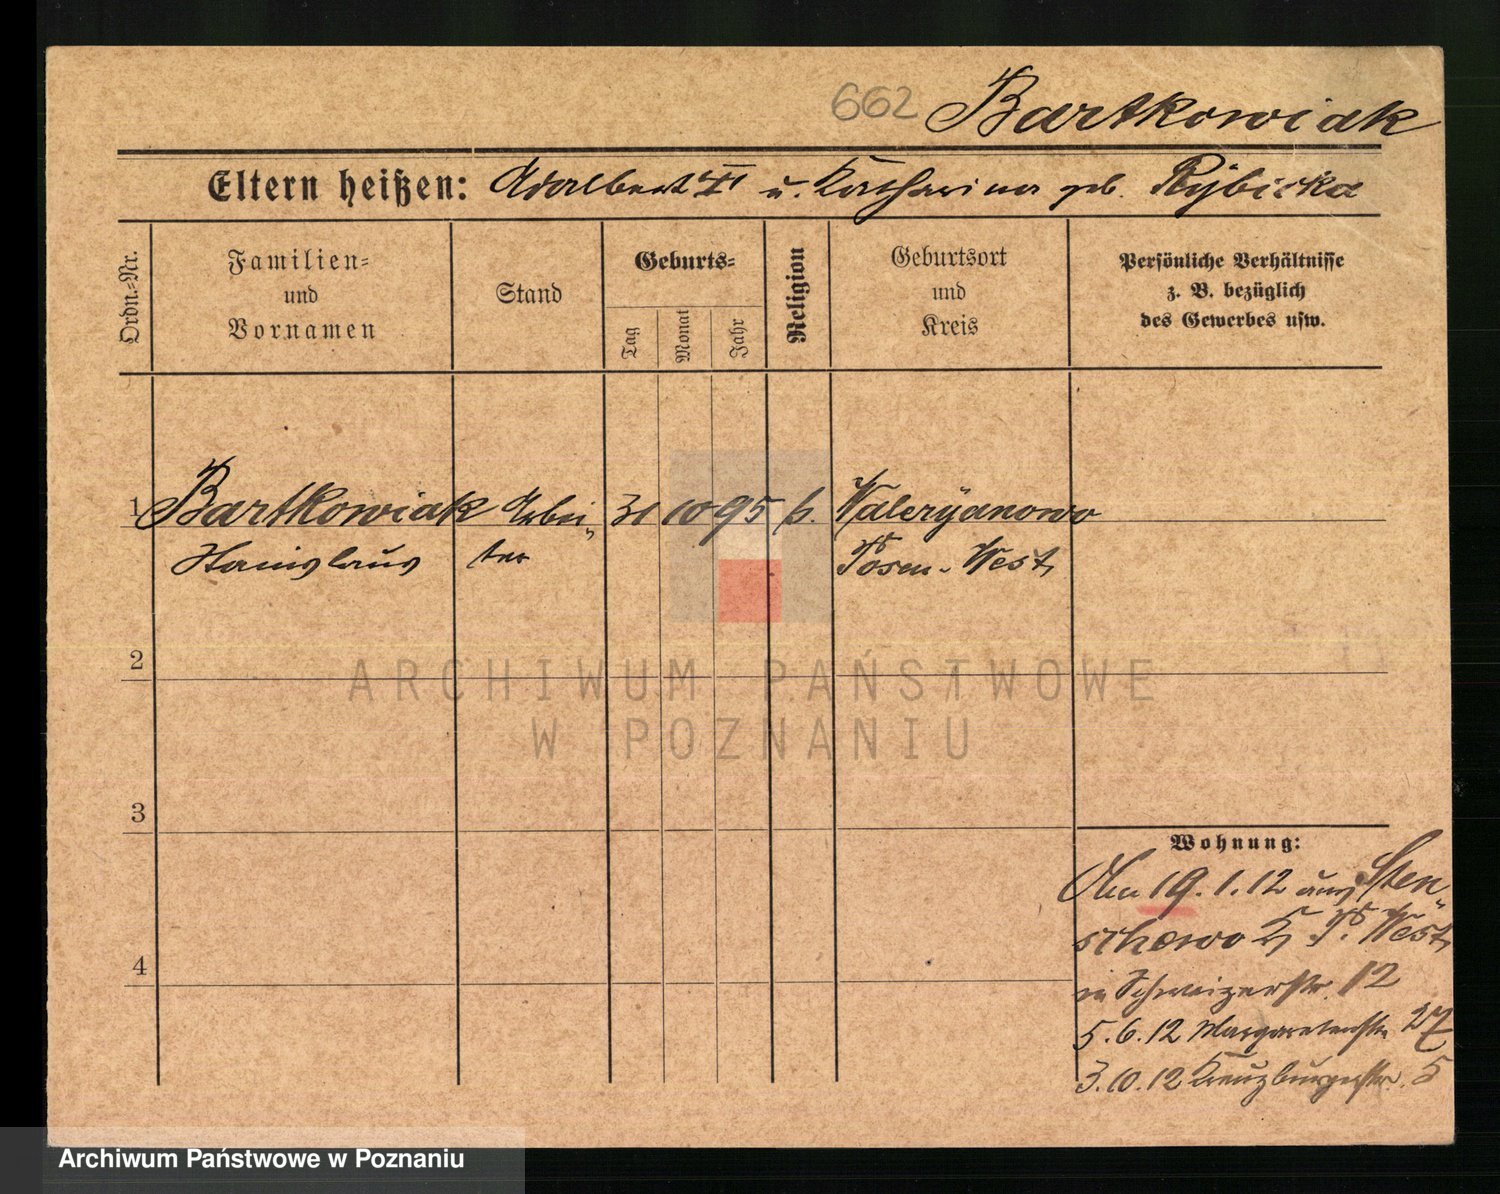 662 Bartkowiak
Eltern heißen: Adalbert II u. Katharina geb. Rybicka
Ordn.-Nr.
Familien-
und
Vornamen
Stand
Geburts-
Tag
Monat
Jahr
Religion
Geburtsort
und
Kreis
Persönliche Verhältnisse
z. B. bezüglich
des Gewerbes usw.
1 Bartkowiak Arbei- 31 10 95 k. Waleryanowo
Stanislaus ter Posen-West
2
ARCHIWUM PAŃSTWOWE
W POZNANIU
3
Wohnung:
19.1.12 aus Sten-
schewo P. West
in Schweizerstr. 12
4
5.6.12 Margaretenstr. 27
3.10.12 Kreuzburgerstr. 5
Archiwum Państwowe w Poznaniu